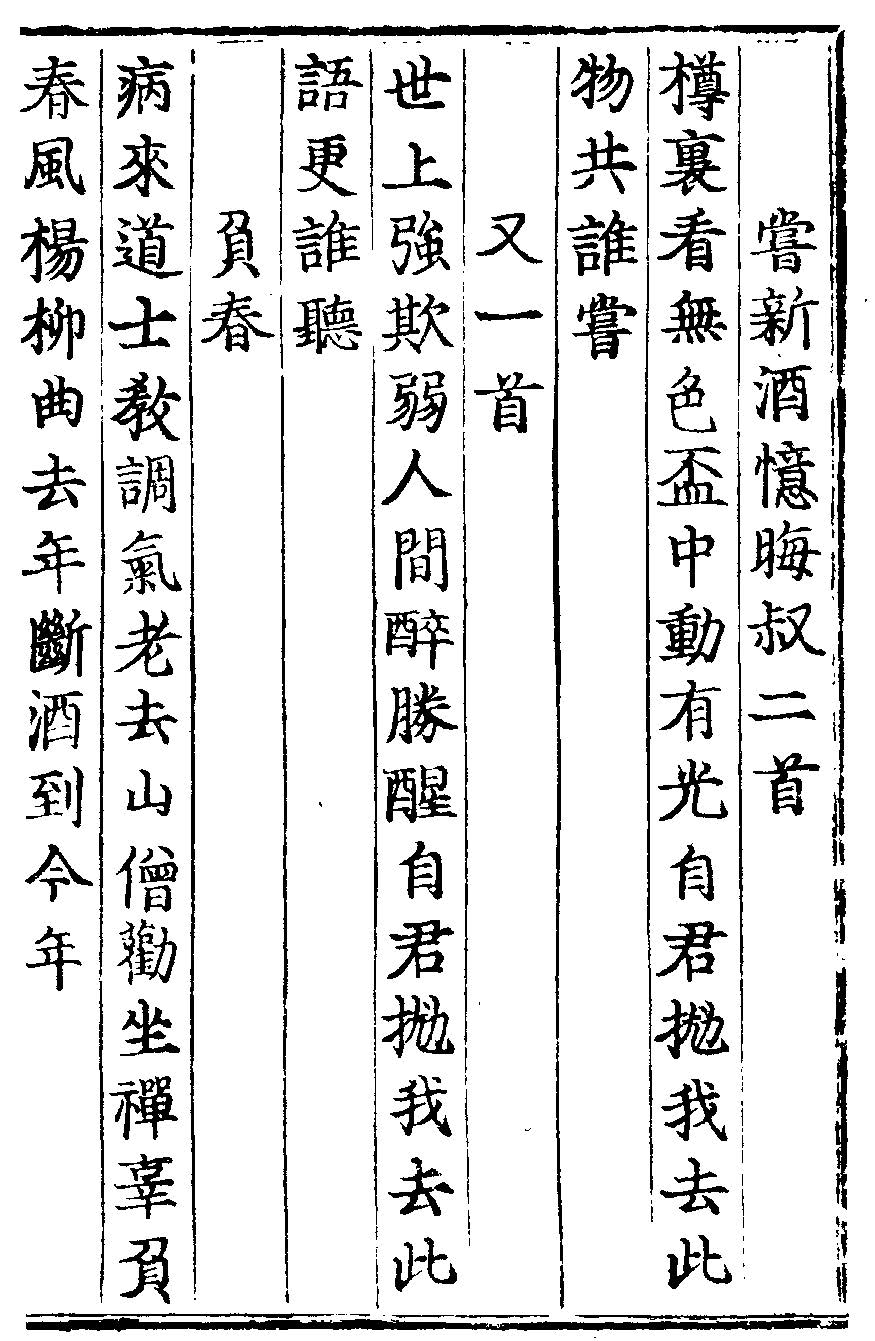 嘗新酒憶晦叔二首
樽裏看無色盃中動有光自君拋我去此
物共誰嘗
又一首
世上強欺弱人間醉勝醒自君拋我去此
語更誰聽
負春
病來道士教調氣老去山僧勸坐禪辜負
春風楊柳曲去年斷酒到今年